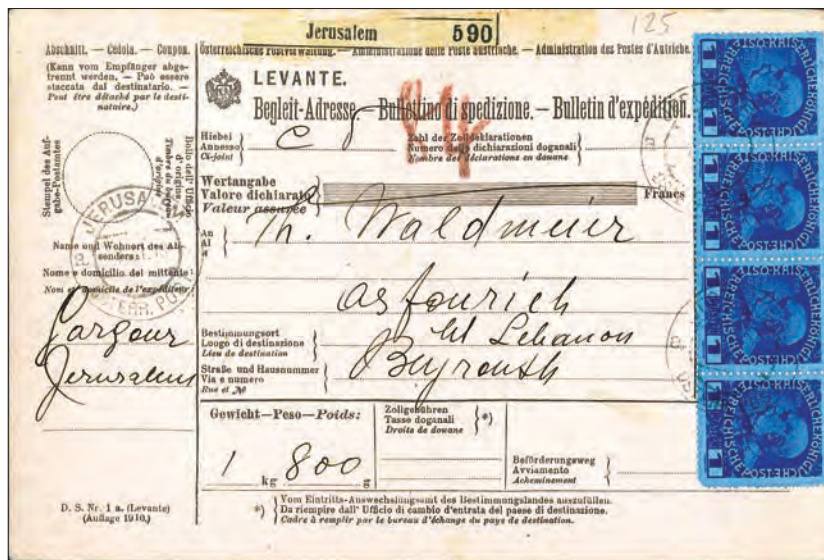 Jerusalem 590
125
Abschnitt. — Cedola. — Coupon.
(Kann vom Empfänger abge-
trennt werden. — Può essere
staccata dal destinatario. —
Peut être détaché par le desti-
nataire.)
Stempel des Auf-
gabe-Postamtes
Bollo dell' Ufficio
d'origine.
Timbre du bureau
d'origine
JERUSA
ÖSTERR. POST
Name und Wohnort des Ab-
senders:
Nome e domicilio del mittente:
Nom et domicile de l'expéditeur:
Gargour
Jerusalem
D. S. Nr. 1 a. (Levante)
(Auflage 1910.)
Österreichische Postverwaltung. — Amministrazione delle Poste austriache. — Administration des Postes d'Autriche.
LEVANTE.
Begleit-Adresse. — Bullettino di spedizione. — Bulletin d'expédition.
Hiebei
Annesso
Ci-joint
Zahl der Zolldeklarationen
Numero delle dichiarazioni doganali
Nombre des déclarations en douane
Wertangabe
Valore dichiarato
Valeur assurée
Francs
An
Al
à
Th. Waldmeier
Asfourieh
Mt Lebanon
Bestimmungsort
Luogo di destinazione
Lieu de destination
Beyrouth
Straße und Hausnummer
Via e numero
Rue et №
Gewicht—Peso—Poids:
1 kg 800 g
Zollgebühren
Tasse doganali
Droits de douane
*)
Beförderungsweg
Avviamento
Acheminement
*) Vom Eintritts-Auswechslungsamt des Bestimmungslandes auszufüllen.
Da riempire dall' Ufficio di cambio d'entrata del paese di destinazione.
Cadre à remplir par le bureau d'échange du pays de destination.